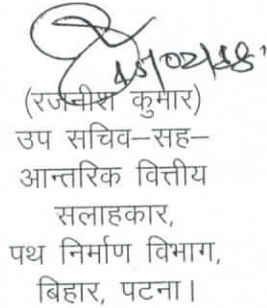 15/02/18
(रजनीश कुमार)
उप सचिव-सह-
आन्तरिक वित्तीय
सलाहकार,
पथ निर्माण विभाग,
बिहार, पटना।